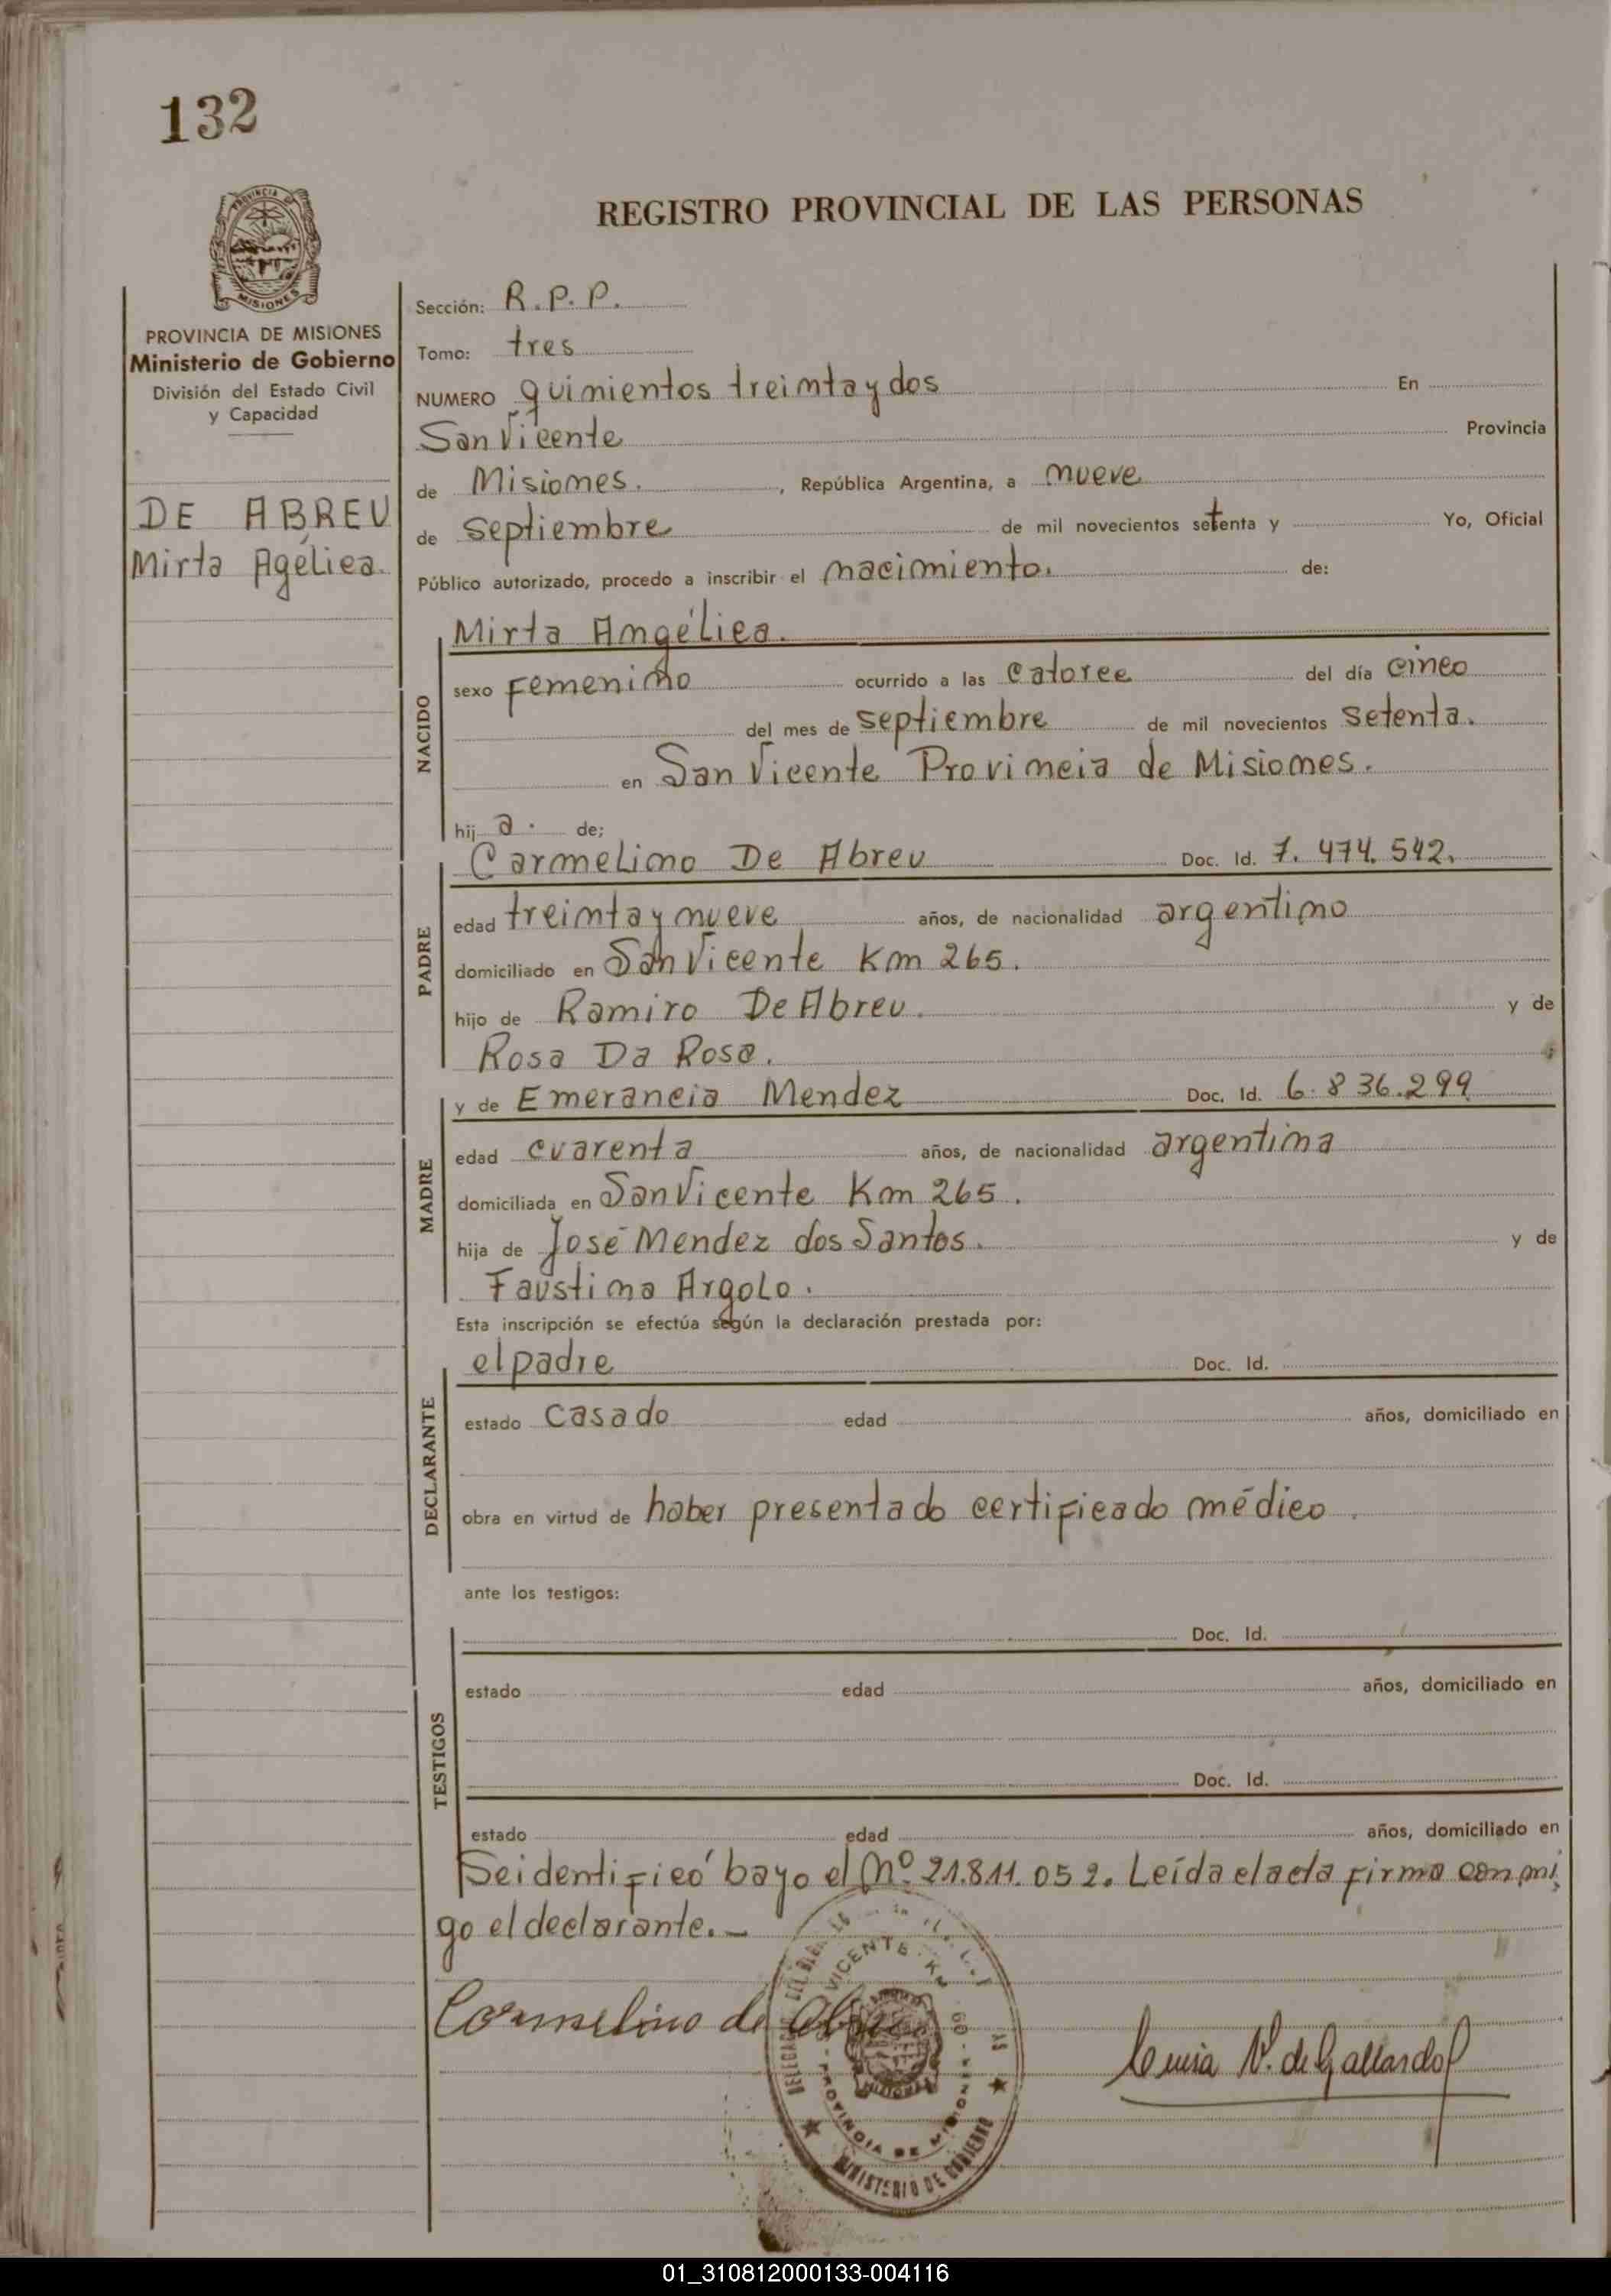 132
PROVINCIA
MISIONES
REGISTRO PROVINCIAL DE LAS PERSONAS
PROVINCIA DE MISIONES
Ministerio de Gobierno
División del Estado Civil
y Capacidad
DE ABREU
Mirta Agélica.
Sección: R.P.P.
Tomo: tres
NUMERO quinientos treinta y dos En
San Vicente Provincia
de Misiones. , República Argentina, a nueve
de septiembre de mil novecientos setenta y Yo, Oficial
Público autorizado, procedo a inscribir el nacimiento. de:
NACIDO
Mirta Angélica.
sexo femenino ocurrido a las catorce del día cinco
del mes de septiembre de mil novecientos setenta.
en San Vicente Provincia de Misiones.
hij a. de;
PADRE
Carmelino De Abreu Doc. Id. 7.474.542.
edad treinta y nueve años, de nacionalidad argentino
domiciliado en San Vicente Km 265.
hijo de Ramiro De Abreu. y de
Rosa Da Rosa.
MADRE
y de Emerancia Mendez Doc. Id. 6.836.299
edad cuarenta años, de nacionalidad argentina
domiciliada en San Vicente Km 265.
hija de José Mendez dos Santos. y de
Faustina Argolo.
Esta inscripción se efectúa según la declaración prestada por:
DECLARANTE
el padre Doc. Id.
estado casado edad años, domiciliado en
obra en virtud de haber presentado certificado médico.
ante los testigos:
TESTIGOS
Doc. Id.
estado edad años, domiciliado en
Doc. Id.
estado edad años, domiciliado en
Se identificó bajo el Nº 21.811.052. Leída el acta firma conmi
go el declarante.-
Carmelino de Abreu
VICENTE
PROVINCIA DE MISIONES
MINISTERIO DE GOBIERNO
MISIONES
N. de Gallardo
01_310812000133-004116